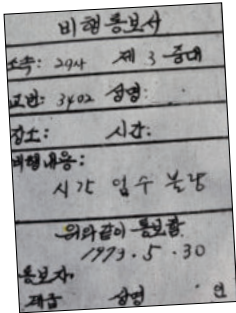 비행통보서
소속: 294 제 3 중대
교번: 3402 성명:
장소: 시간:
비행내용:
시간 엄수 불량
위와같이 통보함
1973. 5. 30
통보자
계급 성명 인